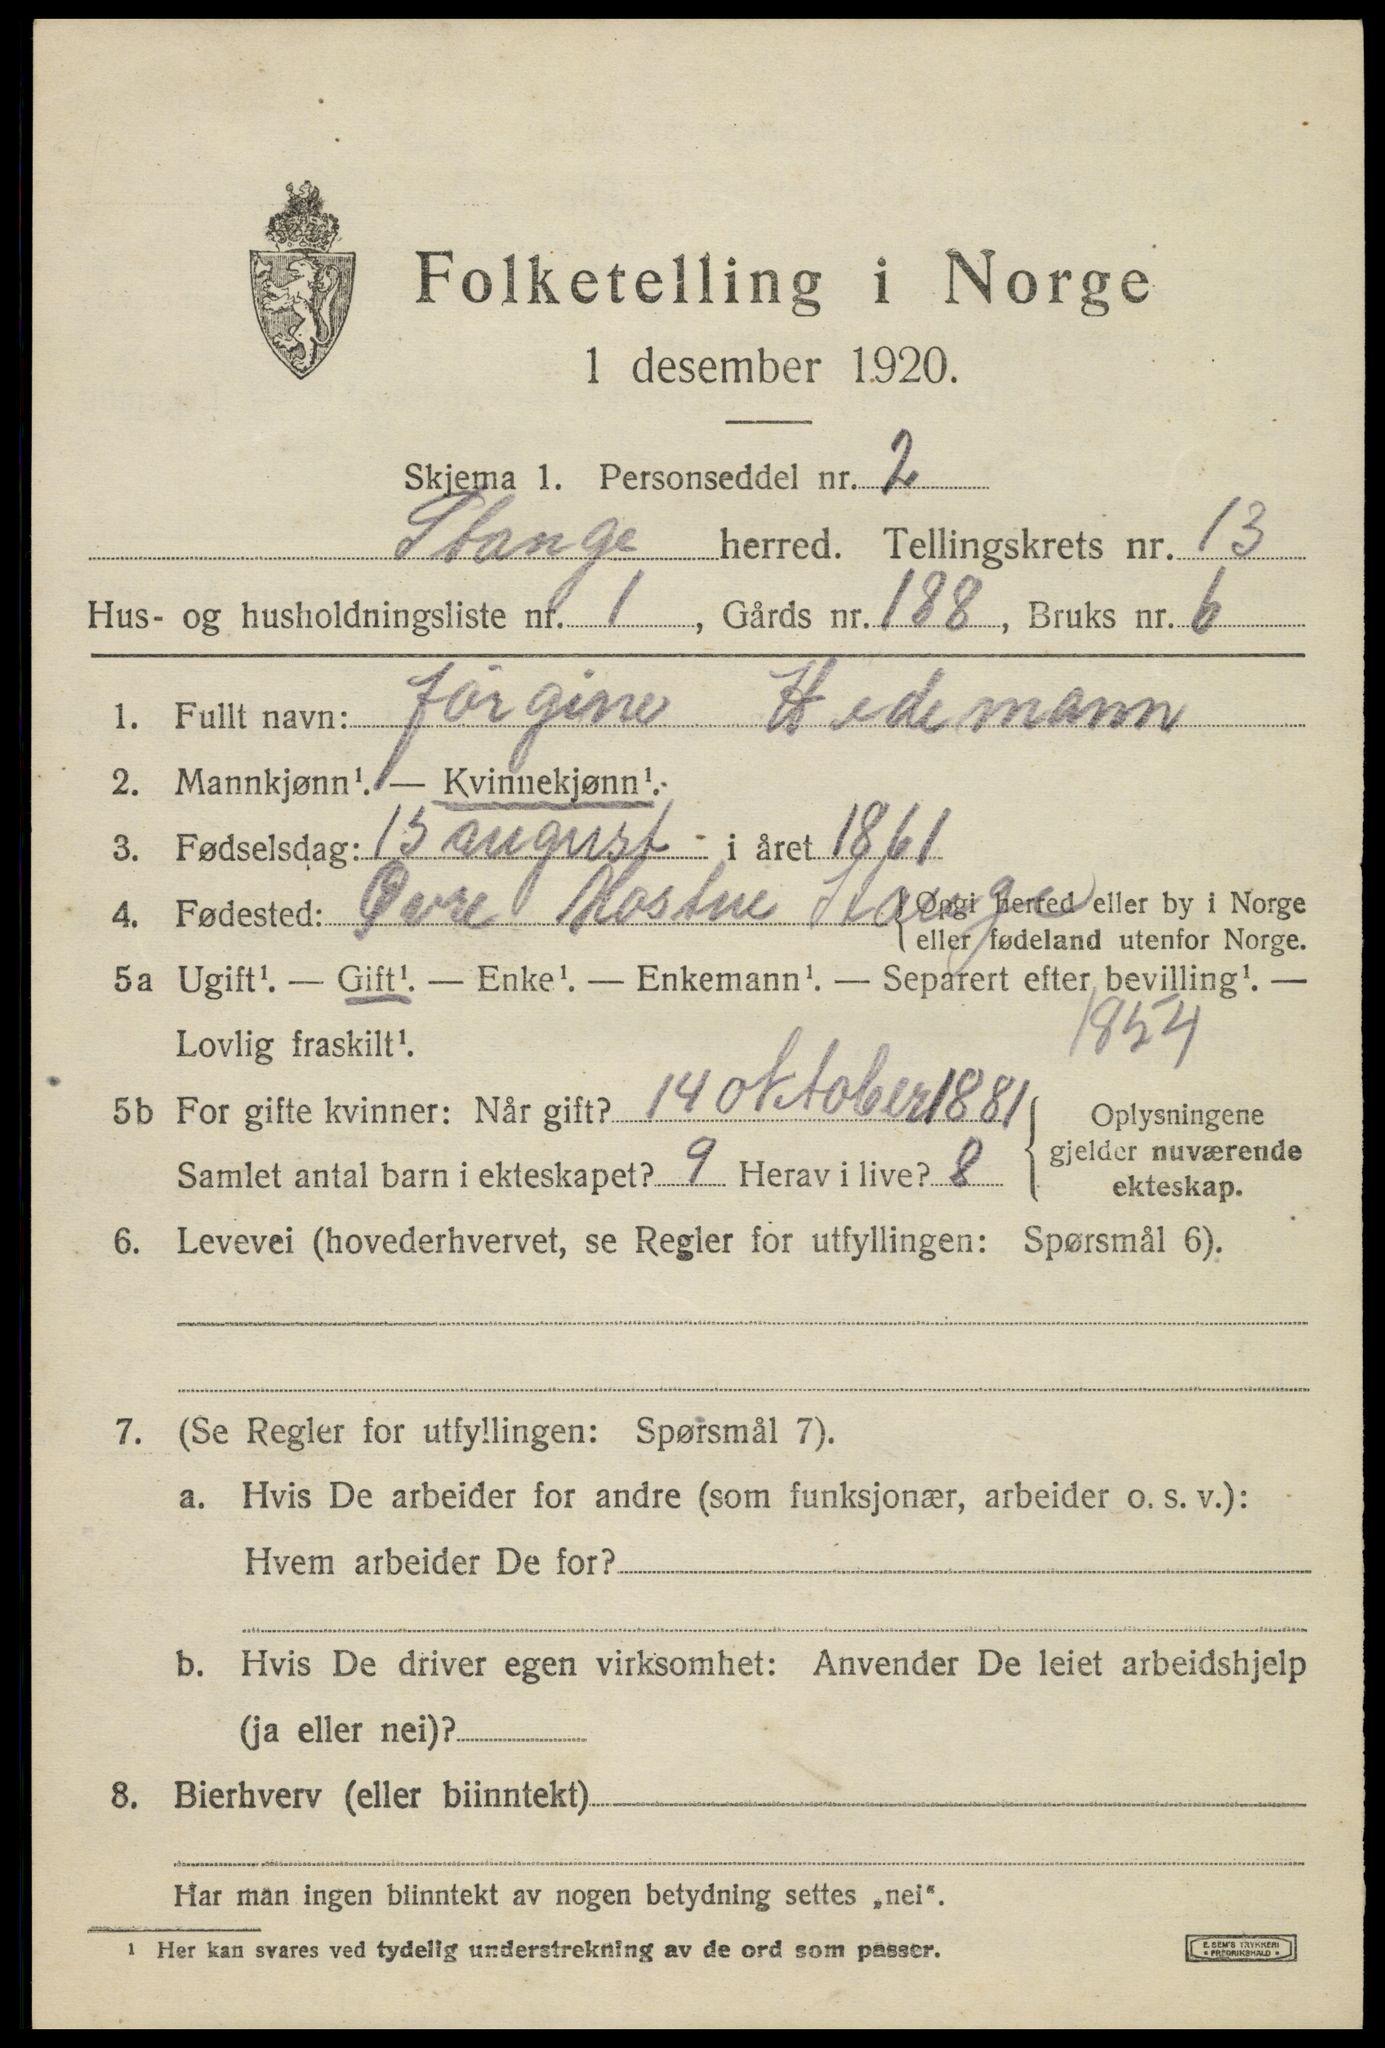 Folketelling i Norge
1 desember 1920.
Skjema 1. Personseddel nr. 2
Stange herred. Tellingskrets nr. 13
Hus- og husholdningsliste nr. 1, Gårds nr. 188, Bruks nr. 6
1. Fullt navn: Jørgine Hedemann
2. Mannkjønn¹. — Kvinnekjønn¹.
3. Fødselsdag: 15 august i året 1861
4. Fødested: Øvre Stange {Opgi herred eller by i Norge
eller fødeland utenfor Norge.
5a Ugift¹. — Gift¹. — Enke¹. — Enkemann¹. — Separert efter bevilling¹. —
Lovlig fraskilt¹. 1854
5b For gifte kvinner: Når gift? 14 oktober 1881 { Oplysningene
Samlet antal barn i ekteskapet? 9 Herav i live? 8 gjelder nuværende
ekteskap.
6. Levevei (hovederhvervet, se Regler for utfyllingen: Spørsmål 6).
7. (Se Regler for utfyllingen: Spørsmål 7).
a. Hvis De arbeider for andre (som funksjonær, arbeider o. s. v.):
Hvem arbeider De for?
b. Hvis De driver egen virksomhet: Anvender De leiet arbeidshjelp
(ja eller nei)?
8. Bierhverv (eller biinntekt)
Har man ingen biinntekt av nogen betydning settes „nei“.
¹ Her kan svares ved tydelig understrekning av de ord som passer.
E. SEM'S TRYKKERI
• FREDRIKSHALD •